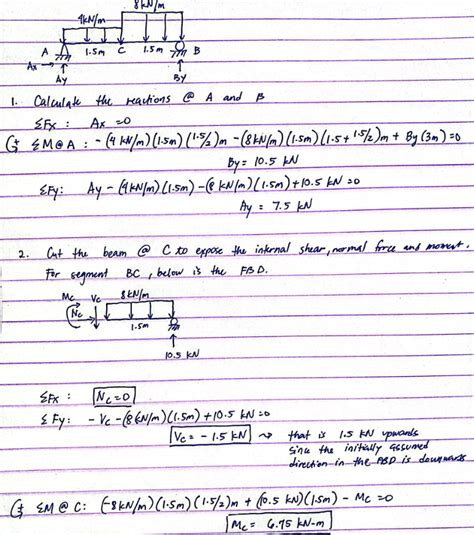 8 kN/m
4kN/m
A 1.5m C 1.5m B
Ax
Ay By
1. Calculate the reactions @ A and B
ΣFx : Ax =0
ΣM@A : -(4 kN/m)(1.5m)(1.5/2)m -(8kN/m)(1.5m)(1.5+1.5/2)m + By(3m)=0
By= 10.5 kN
ΣFy: Ay -(4kN/m)(1.5m)-(8 kN/m)(1.5m)+10.5 kN =0
Ay = 7.5 kN
2. Cut the beam @ C to expose the internal shear, normal force and moment.
For segment BC, below is the FBD.
Mc Vc 8 kN/m
Nc
1.5m
10.5 kN
ΣFx : Nc=0
ΣFy: -Vc-(8 kN/m)(1.5m)+10.5 kN=0
Vc= -1.5 kN that is 1.5 kN upwards
since the initially assumed
direction in the FBD is downwards
ΣM@C: (-8kN/m)(1.5m)(1.5/2)m + (10.5 kN)(1.5m) - Mc =0
Mc= 6.75 kN-m